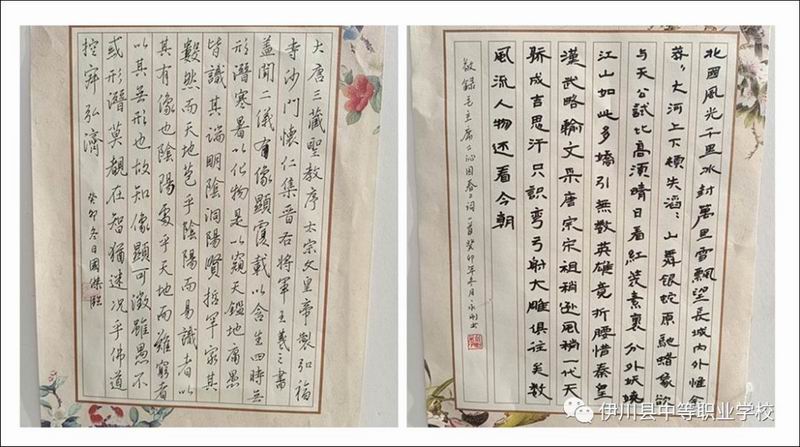 大唐三藏聖教序 太宗文皇帝製 弘福
寺沙門懷仁集晉右將軍王羲之書
蓋聞二儀有像顯覆載以含生四時無
形潛寒暑以化物是以窺天鑑地庸愚
皆識其端明陰洞陽賢哲罕窮其
數然而天地苞乎陰陽而易識者以
其有像也陰陽處乎天地而難窮者
以其無形也故知像顯可徵雖愚不
或形潛莫覩在智猶迷況乎佛道
控寂弘濟
癸卯冬日國傑臨
北國風光千里冰封萬里雪飄望長城内外惟余
莽々大河上下頓失滔々山舞银蛇原馳蜡象欲
与天公試比高須晴日看紅装素裹分外妖娆
江山如此多嬌引無數英雄竟折腰惜秦皇
漢武略輸文采唐宗宋祖稍逊風 一代天
骄成吉思汗只識彎弓射大雕俱往矣数
風流人物还看今朝
敬録毛主席「沁园春」词一首癸卯年冬月
伊川县中等职业学校